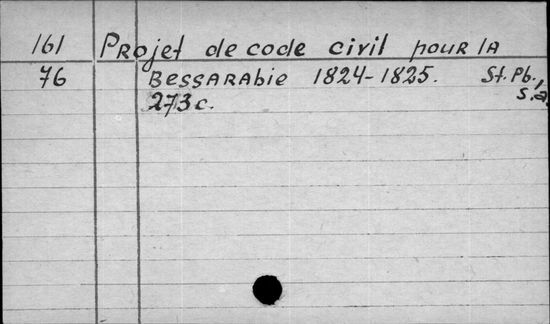 161 Projet de code civil pour la
76 Bessarabie 1824-1825. St. Pb.,
s.a.
273 c.